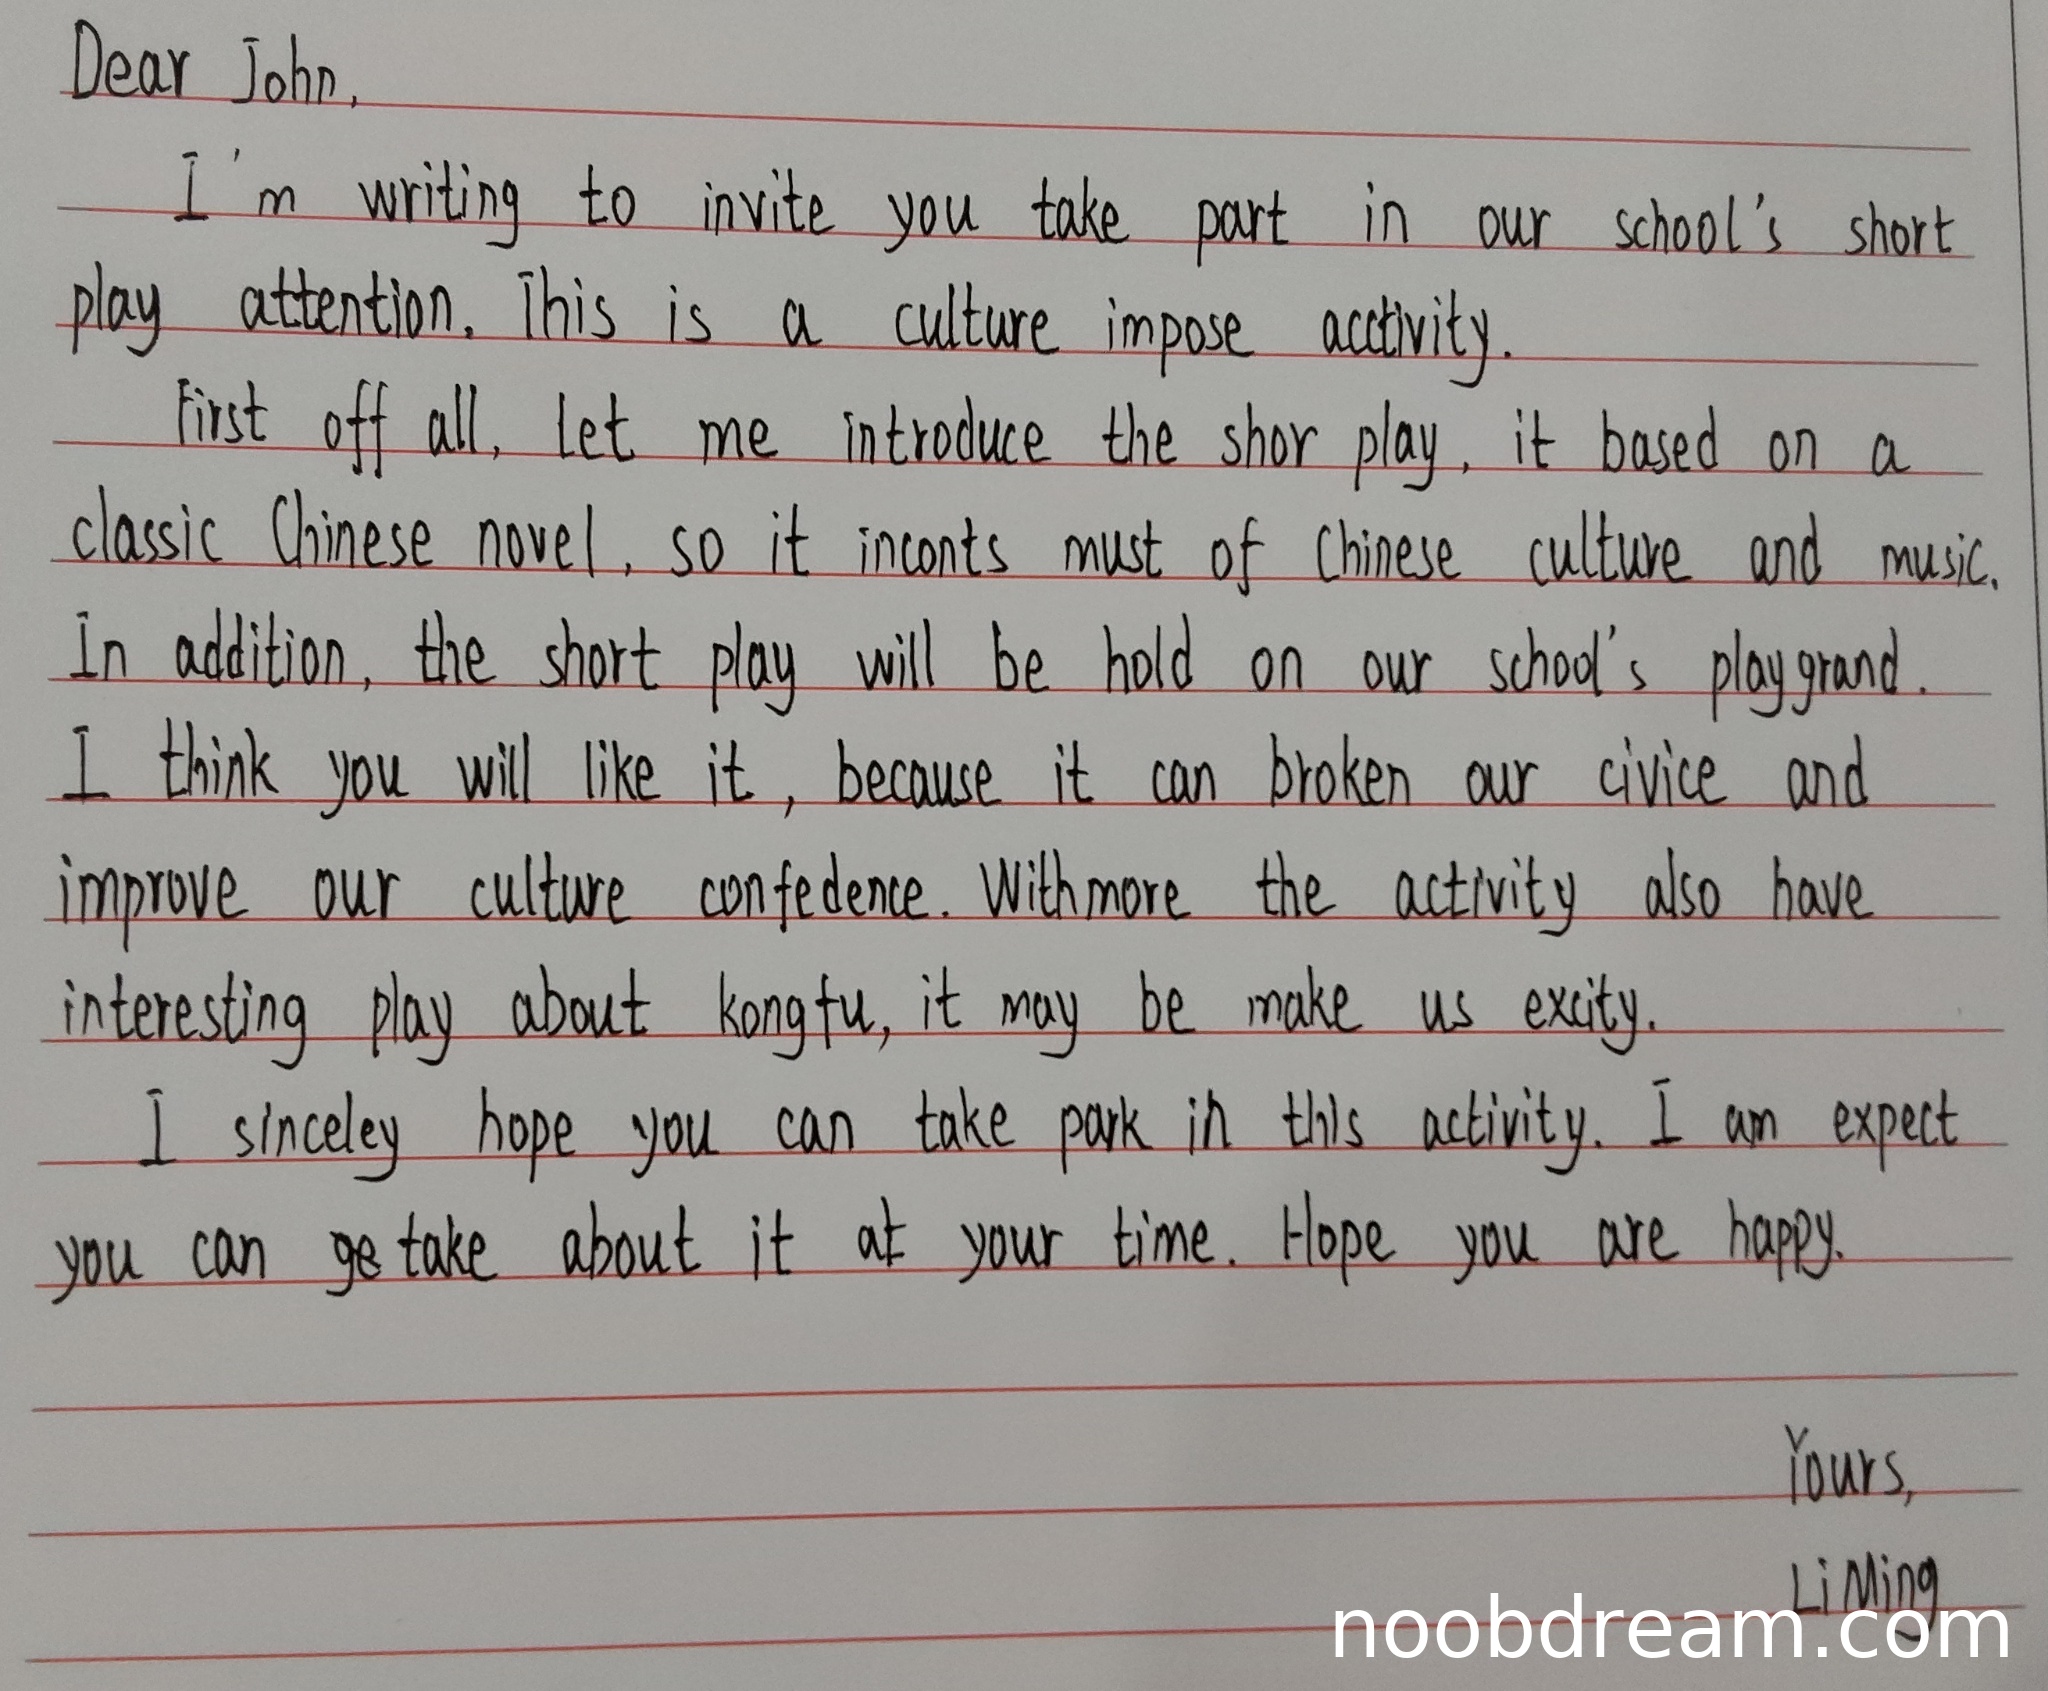 Dear John,
I'm writing to invite you take part in our school's short
play attention. This is a culture impose acctivity.
First off all, let me introduce the shor play, it based on a
classic Chinese novel, so it inconts must of Chinese culture and music.
In addition, the short play will be hold on our school's playgrand.
I think you will like it, because it can broken our civice and
improve our culture confedence. Withmore the activity also have
interesting play about kongfu, it may be make us excity.
I sinceley hope you can take park in this activity. I am expect
you can ge take about it at your time. Hope you are happy.
Yours,
Li Ming
noobdream.com